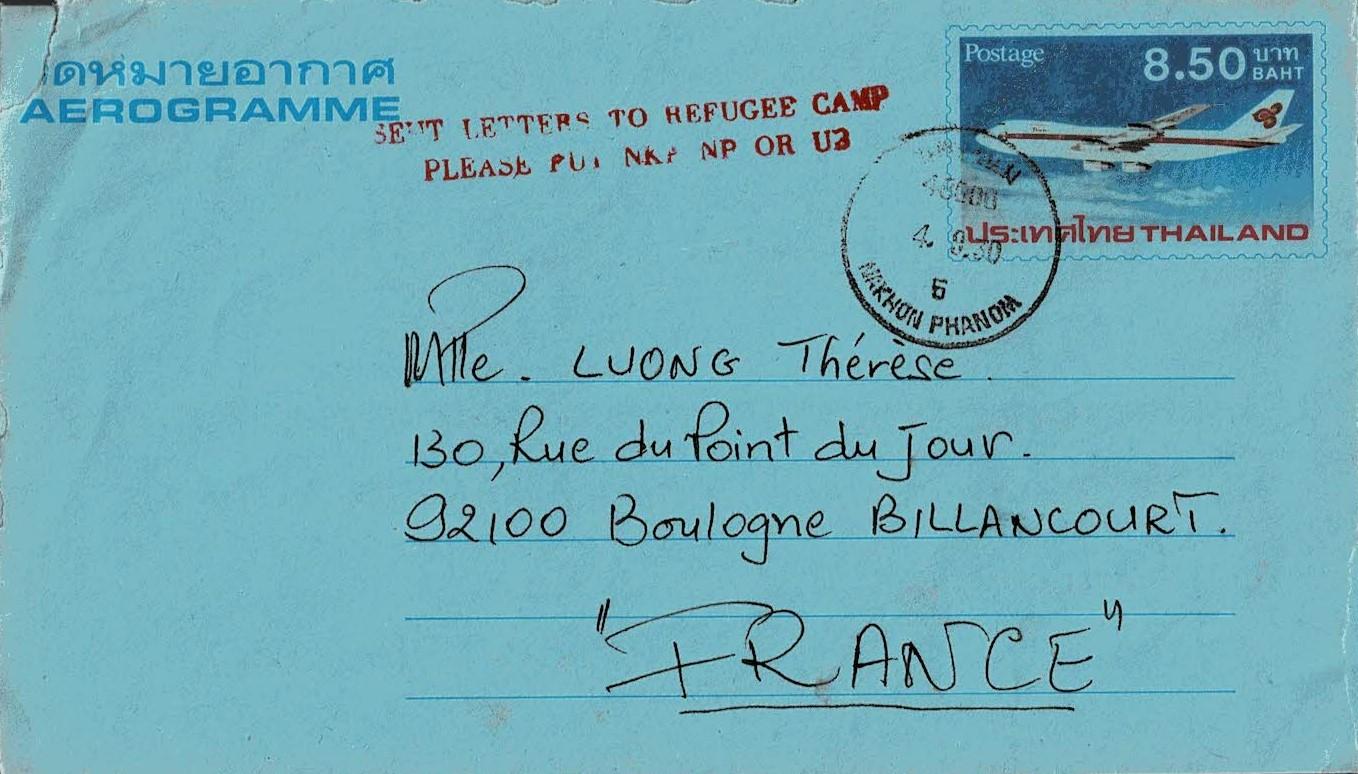 ดหมายอากาศ
AEROGRAMME
SENT LETTERS TO REFUGEE CAMP
PLEASE PUT NKP NP OR U3
Postage
8.50 บาท
BAHT
ประเทศไทย THAILAND
48000
4. 9.80
6
NAKHON PHANOM
Mlle. LUONG Thérèse.
130, Rue du Point du Jour.
92100 Boulogne BILLANCOURT.
"FRANCE"